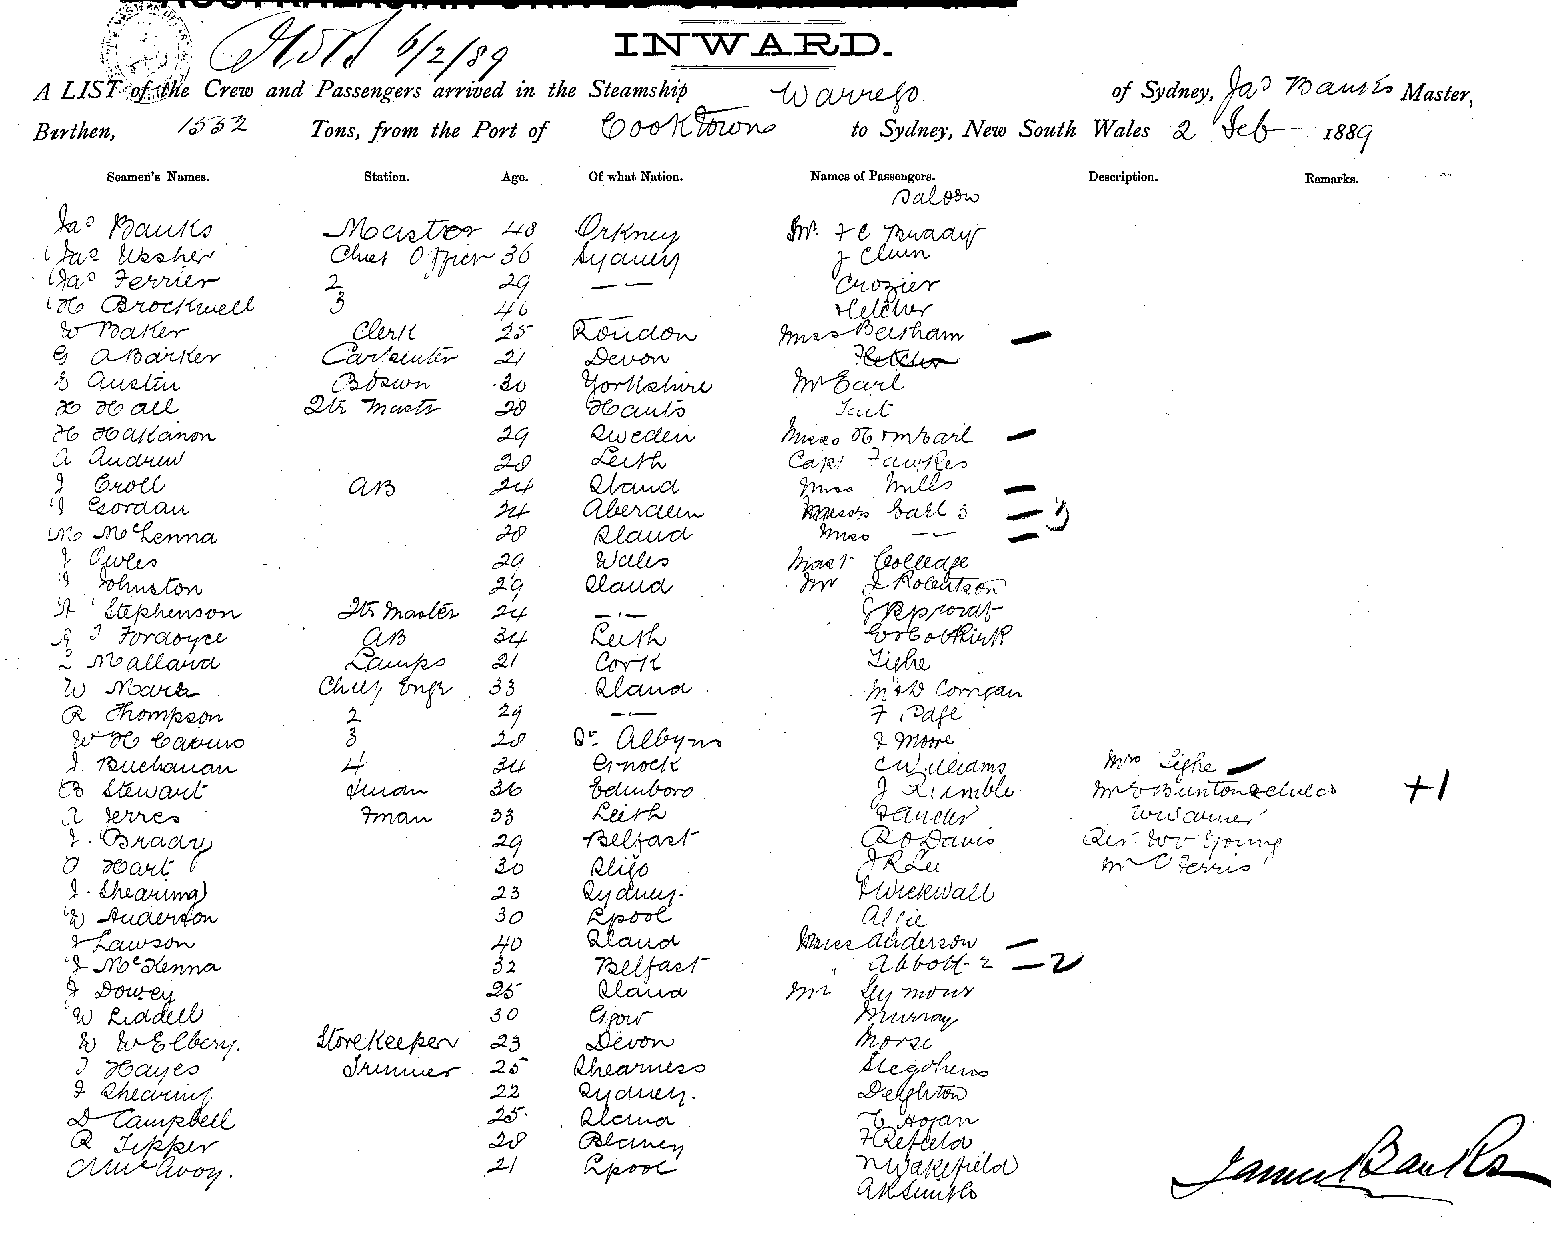 INWARD.
6/2/89
A LIST of the Crew and Passengers arrived in the Steamship Warrego of Sydney, Jas Banks Master,
Burthen, 1552 Tons, from the Port of Cooktown to Sydney, New South Wales 2 Feb 1889
Seamen's Names. Station. Age. Of what Nation. Names of Passengers. Description. Remarks.
Saloon
Jas Banks Master 48 Orkney Mr F C
Jas Ussher Chief Officer 36 Sydney J
Jas Ferrier 2 29 — — Crozier
H Brockwell 3 46 Fletcher
W Baker Clerk 25 London Miss
G A Barker Carpenter 21 Devon
E Austin Bosun 30 Yorkshire Mr Earl
H Hall 2tr Mastr 28 Hants
H Hakanon 29 Sweden Miss
A Andrew 28 Leith Capt Fawkes
J Croll AB 24 Sland Miss Mills
J Gordan 24 Aberdeen Misses Earl 3 3
McKenna 28 Sland Miss — —
J Owles 29 Wales Mast Colledge
J Johnston 29 Sland Mr J Robertson
A Stephenson 2tr Master 24 — · —
G J Fordoyce AB 34 Leith
L Mallard Lamps 21 Cork Tighe
W Mark Chief Engr 33 Sland Corrigan
R Thompson 2 29 — — F Page
W H Cavins 3 28 Dr Albyns J Moore
J Buchanan 4 34 Grnock C Williams Mrs Tighe
B Stewart Fman 36 Edinboro J Kimble Mr E Bunton & child +1
A Jerres Fman 33 Leith W Warner
J. Brady 29 Belfast R O Davis Rev Wr Young
O Hart 30 Sligo J R Lee Mr C Ferris
J. Shearing 23 Sydney. Wickwall
W Anderson 30 Lpool
J Lawson 40 Sland Miss Anderson
J McKenna 32 Belfast " Abbott 2 2
J Dowey 25 Sland Mr Seymour
W Liddell 30 Ggow Murray
W W Elbery. Storekeeper 23 Devon Morse
J Hayes Trimmer 25 Shearness Stephens
J Shearing 22 Sydney. Deighton
D Campbell 25 Sland E Hogan
R Tipper 28 Blaney
McAvoy. 21 Lpool N Wakefield
A K Smith
James Banks